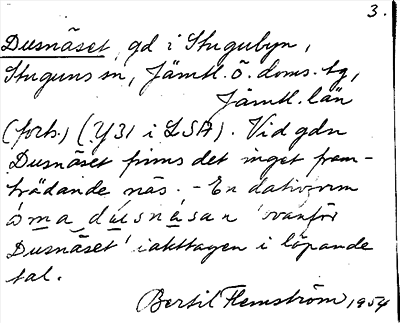 3.
Dusnäset, gd i Stugubyn,
Stuguns sn, Jämtl. ö. doms. tg,
Jämtl. län
(forts.) (Y31 i LSA). Vid gdn
Dusnäset finns det inget fram-
trädande näs. - En dativform
dusnasan 'ovanför
Dusnäset' iakttagen i löpande
tal.
Bertil Flemström 1954